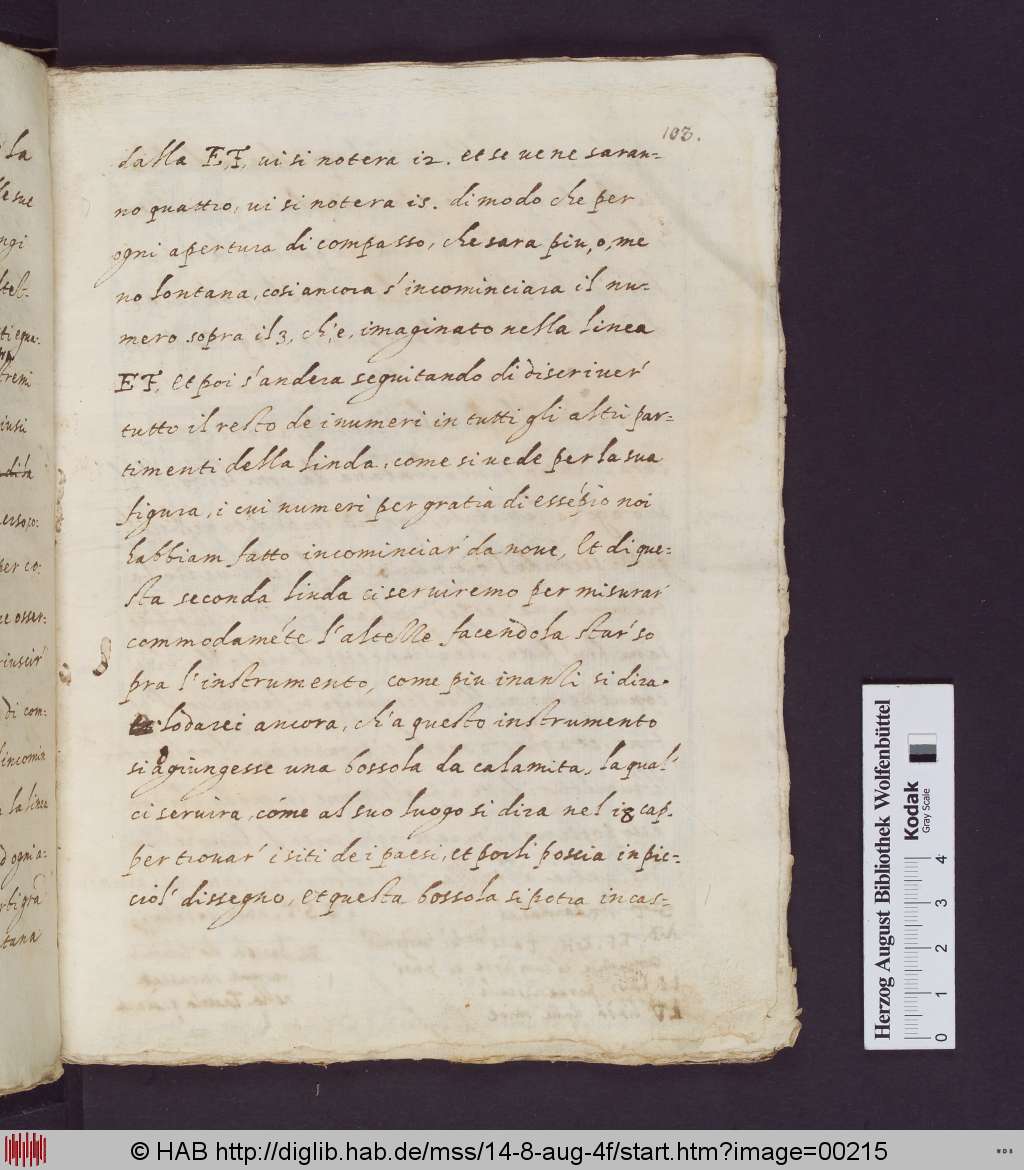 103.
dalla EF, vi si notera 12. et se ve ne saran-
no quattro, vi si notera 15. di modo che per
ogni apertura di compasso, che sara piu, o, me
no lontana, cosi ancora s'incominciara il nu-
mero sopra il 3, ch'e, imaginato nella linea
EF, et poi s'andera seguitando di discriver'
tutto il resto de i numeri in tutti gli altri par-
timenti della linda, come si vede per la sua
figura, i cui numeri per gratia di essépio noi
habbiam fatto incominciar' da nove, Et di que-
sta seconda linda ci serviremo per misurar'
commodaméte l'altezze facendola star' so
pra l'instrumento, come piu inanti si dira.
lodarei ancora, ch'a questo instrumento
si agiungesse una bossola da calamita, la qual'
ci servira, come al suo luogo si dira nel 18 cap.
per trovar' i siti de i paesi, et porli poscia in pic-
ciol' dissegno, et questa bossola si potra incas-
la
ngi
tremi
per co
di com-
l'incomin
la linea
d ogni a-
tana
Herzog August Bibliothek Wolfenbüttel
Kodak
Gray Scale
0 1 2 3 4
© HAB http://diglib.hab.de/mss/14-8-aug-4f/start.htm?image=00215